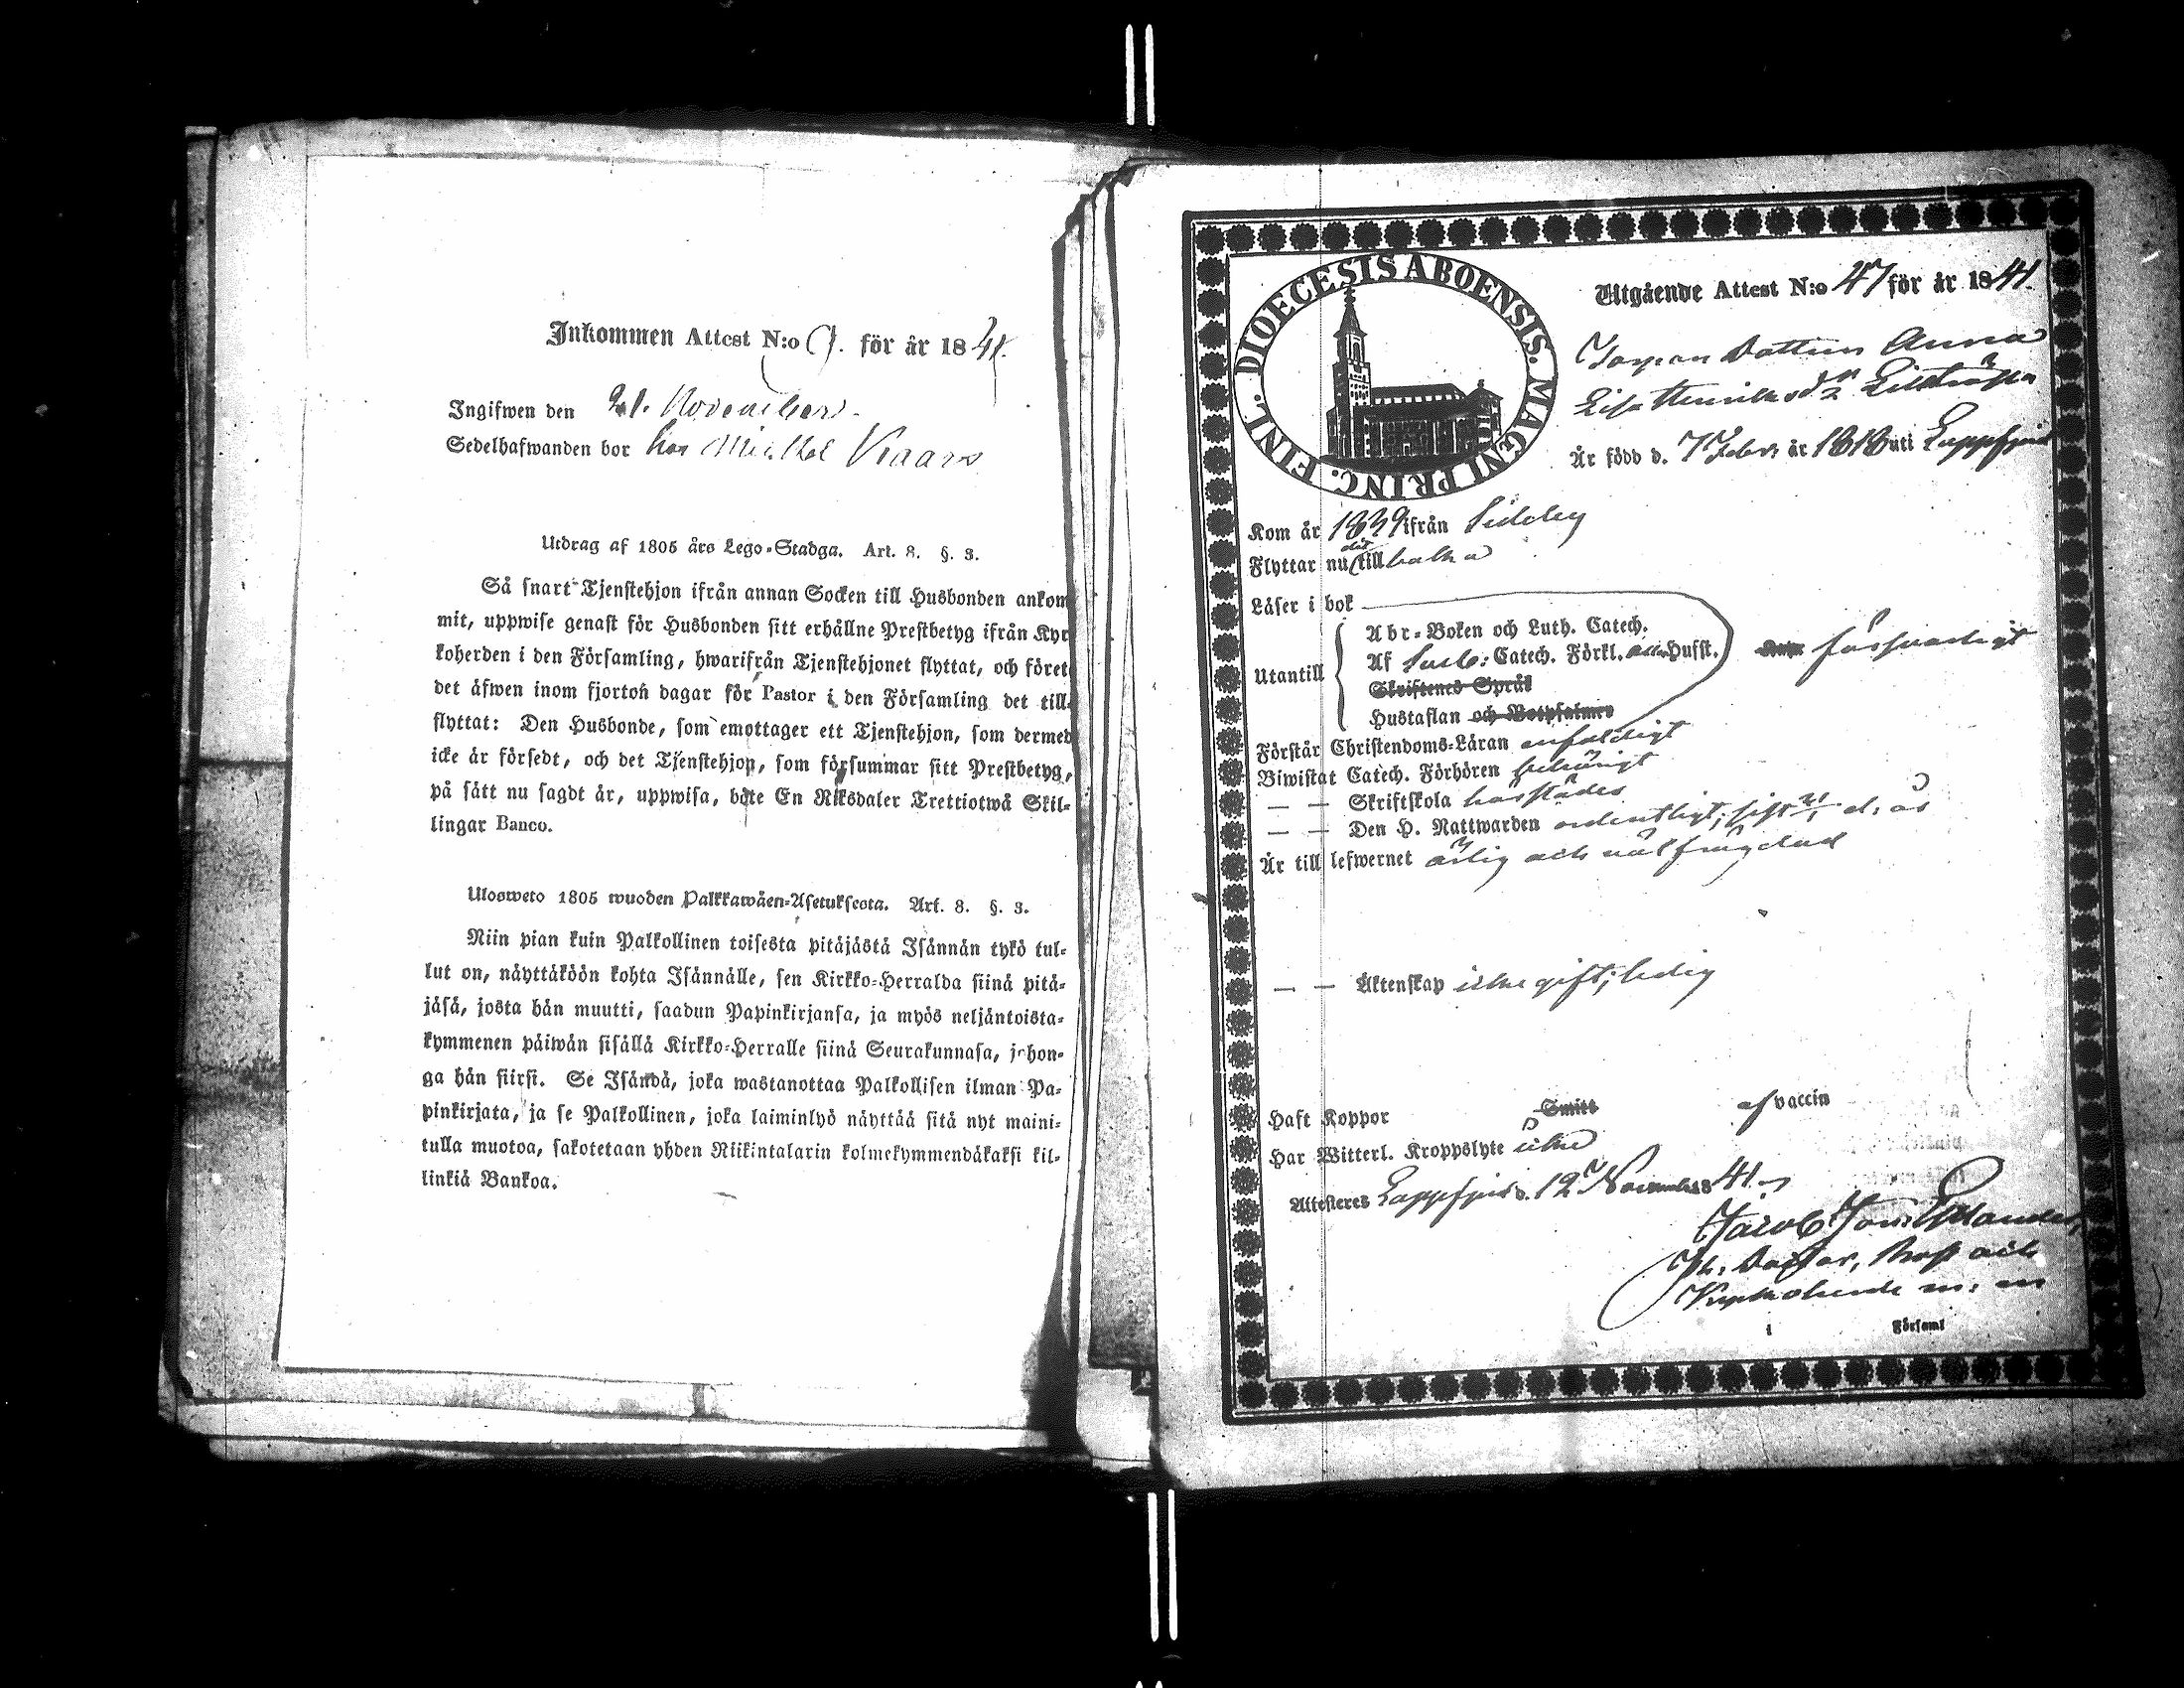 Inkommen Attest N:o 9. för år 1841.
Ingifwen den 21. November.
Sedelhafwanden bor hos Mickel Kaars
Utdrag af 1805 års Lego-Stadga. Art. 8. §. 3.
Så snart Tjenstehjon ifrån annan Socken till Husbonden ankom-
mit, uppwise genast för Husbonden sitt erhållne Prestbetyg ifrån Kyr-
koherden i den Församling, hwarifrån Tjenstehjonet flyttat, och förete
det äfwen inom fjorton dagar för Pastor i den Församling det till-
flyttat: Den Husbonde, som emottager ett Tjenstehjon, som dermed
icke är försedt, och det Tjenstehjon, som försummar sitt Prestbetyg,
på sätt nu sagdt är, uppwisa, böte En Riksdaler Trettiotwå Skil-
lingar Banco.
Ulosweto 1805 wuoden Palkkawäen-Asetuksesta. Art. 8. §. 3.
Niin pian kuin Palkollinen toisesta pitäjästä Isännän tykö tul-
lut on, näyttäköön kohta Isännälle, sen Kirkko-Herralda siinä pitä-
jäsä, josta hän muutti, saadun Papinkirjansa, ja myös neljäntoista-
kymmenen päiwän sisällä Kirkko-Herralle siinä Seurakunnasa, johon-
ga hän siirsi. Se Isändä, joka wastanottaa Palkollisen ilman Pa-
pinkirjata, ja se Palkollinen, joka laiminlyö näyttää sitä nyt maini-
tulla muotoa, sakotetaan yhden Riikintalarin kolmekymmendäkaksi kil-
linkiä Bankoa.
DIOECESIS ABOENSIS. MAGNI PRINC. FINL.
Utgående Attest N:o 47 för år 1841.
Dottren Anna
Lisa Henriksdr Lillträsk
Är född d. 7 Febr. år 1818 uti Lappfjerd
Kom år 1839 ifrån Sideby
Flyttar nu dit till baka
Läser i bok
Utantill
Abr-Boken och Luth. Catech.
Af Sveb: Catech. Förkl. Hufst.
försvarligt
Skriftenes Språk
Hustaflan och Botpsalmer
Förstår Christendoms-Läran enfaldigt
Biwistat Catech. Förhören behörigt
— — Skriftskola härstädes
— — Den H. Nattwarden ordentligt, sist d. år
Är till lefwernet ärlig och välfrägdad
— — Äktenskap icke gift; ledig
Haft Koppor Smitt af vaccin
Har Witterl. Kroppslyte icke
Attesteres Lappfjerd d. 12 November 1841.
Jacob Jon. Estlander,
Th. Doctor, Prost och
Kyrkoherde m. m
i Församl